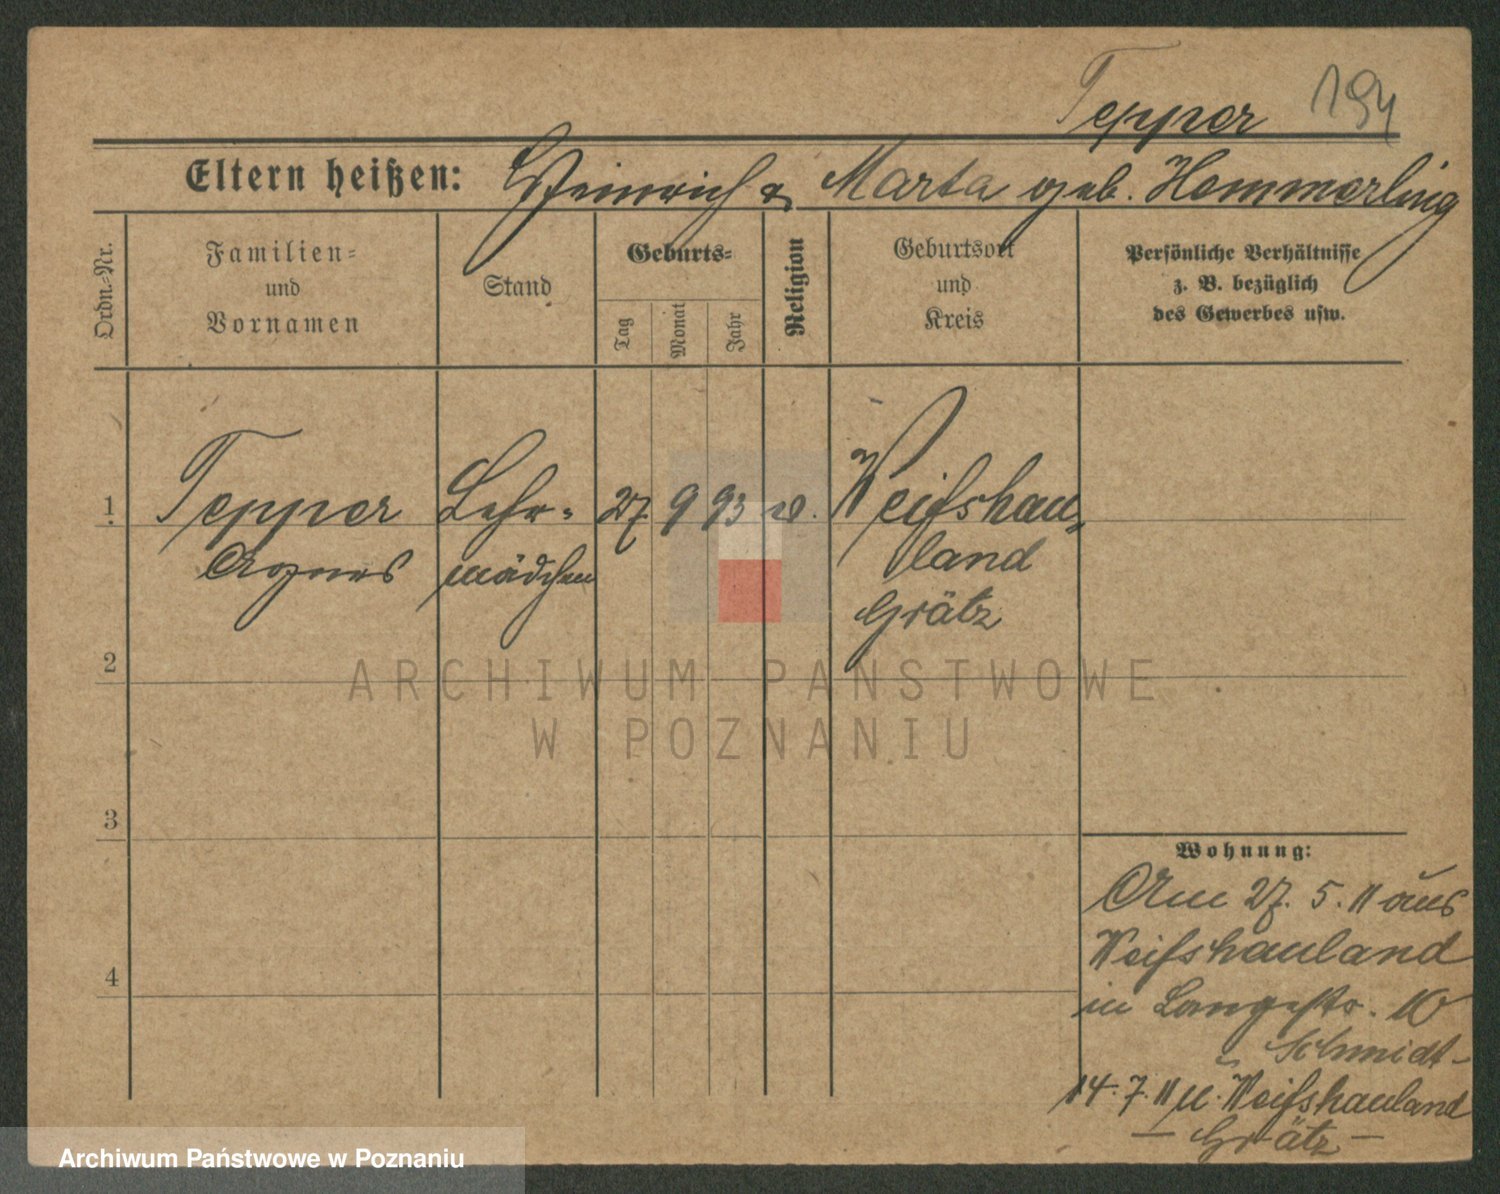 Tepper 194
Eltern heißen: Heinrich & Marta geb. Hemmerling
Ordn.-Nr.
Familien-
und
Vornamen
Stand
Geburts-
Tag
Monat
Jahr
Religion
Geburtsort
und
Kreis
Persönliche Verhältnisse
z. B. bezüglich
des Gewerbes usw.
1 Tepper Lehr- 27 9 93 Weißhau-
Agnes mädchen land
Grätz
2
ARCHIWUM PAŃSTWOWE
W POZNANIU
3
Wohnung:
Am 27. 5. 11 aus
Weißhauland
4
in Langestr. 10
Schmidt-
14. 7. 11 n. Weißhauland
- Grätz -
Archiwum Państwowe w Poznaniu